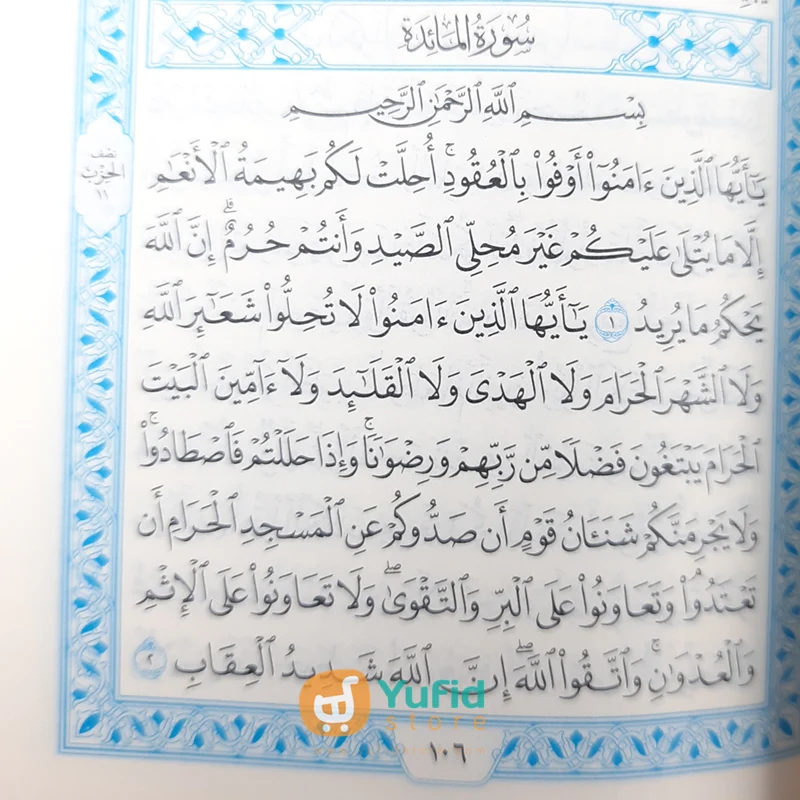 سُورَةُ المَائِدَةِ
بِسْمِ ٱللَّهِ ٱلرَّحْمَٰنِ ٱلرَّحِيمِ
يَٰٓأَيُّهَا ٱلَّذِينَ ءَامَنُوٓا۟ أَوْفُوا۟ بِٱلْعُقُودِ ۚ أُحِلَّتْ لَكُم بَهِيمَةُ ٱلْأَنْعَٰمِ
إِلَّا مَا يُتْلَىٰ عَلَيْكُمْ غَيْرَ مُحِلِّى ٱلصَّيْدِ وَأَنتُمْ حُرُمٌ ۗ إِنَّ ٱللَّهَ
يَحْكُمُ مَا يُرِيدُ ١ يَٰٓأَيُّهَا ٱلَّذِينَ ءَامَنُوا۟ لَا تُحِلُّوا۟ شَعَٰٓئِرَ ٱللَّهِ
وَلَا ٱلشَّهْرَ ٱلْحَرَامَ وَلَا ٱلْهَدْىَ وَلَا ٱلْقَلَٰٓئِدَ وَلَآ ءَآمِّينَ ٱلْبَيْتَ
ٱلْحَرَامَ يَبْتَغُونَ فَضْلًا مِّن رَّبِّهِمْ وَرِضْوَٰنًا ۚ وَإِذَا حَلَلْتُمْ فَٱصْطَادُوا۟ ۚ
وَلَا يَجْرِمَنَّكُمْ شَنَـَٔانُ قَوْمٍ أَن صَدُّوكُمْ عَنِ ٱلْمَسْجِدِ ٱلْحَرَامِ أَن
تَعْتَدُوا۟ ۘ وَتَعَاوَنُوا۟ عَلَى ٱلْبِرِّ وَٱلتَّقْوَىٰ ۖ وَلَا تَعَاوَنُوا۟ عَلَى ٱلْإِثْمِ
وَٱلْعُدْوَٰنِ ۚ وَٱتَّقُوا۟ ٱللَّهَ ۖ إِنَّ ٱللَّهَ شَدِيدُ ٱلْعِقَابِ ٢
نصف
الحزب
١١
Yufid
store
١٠٦